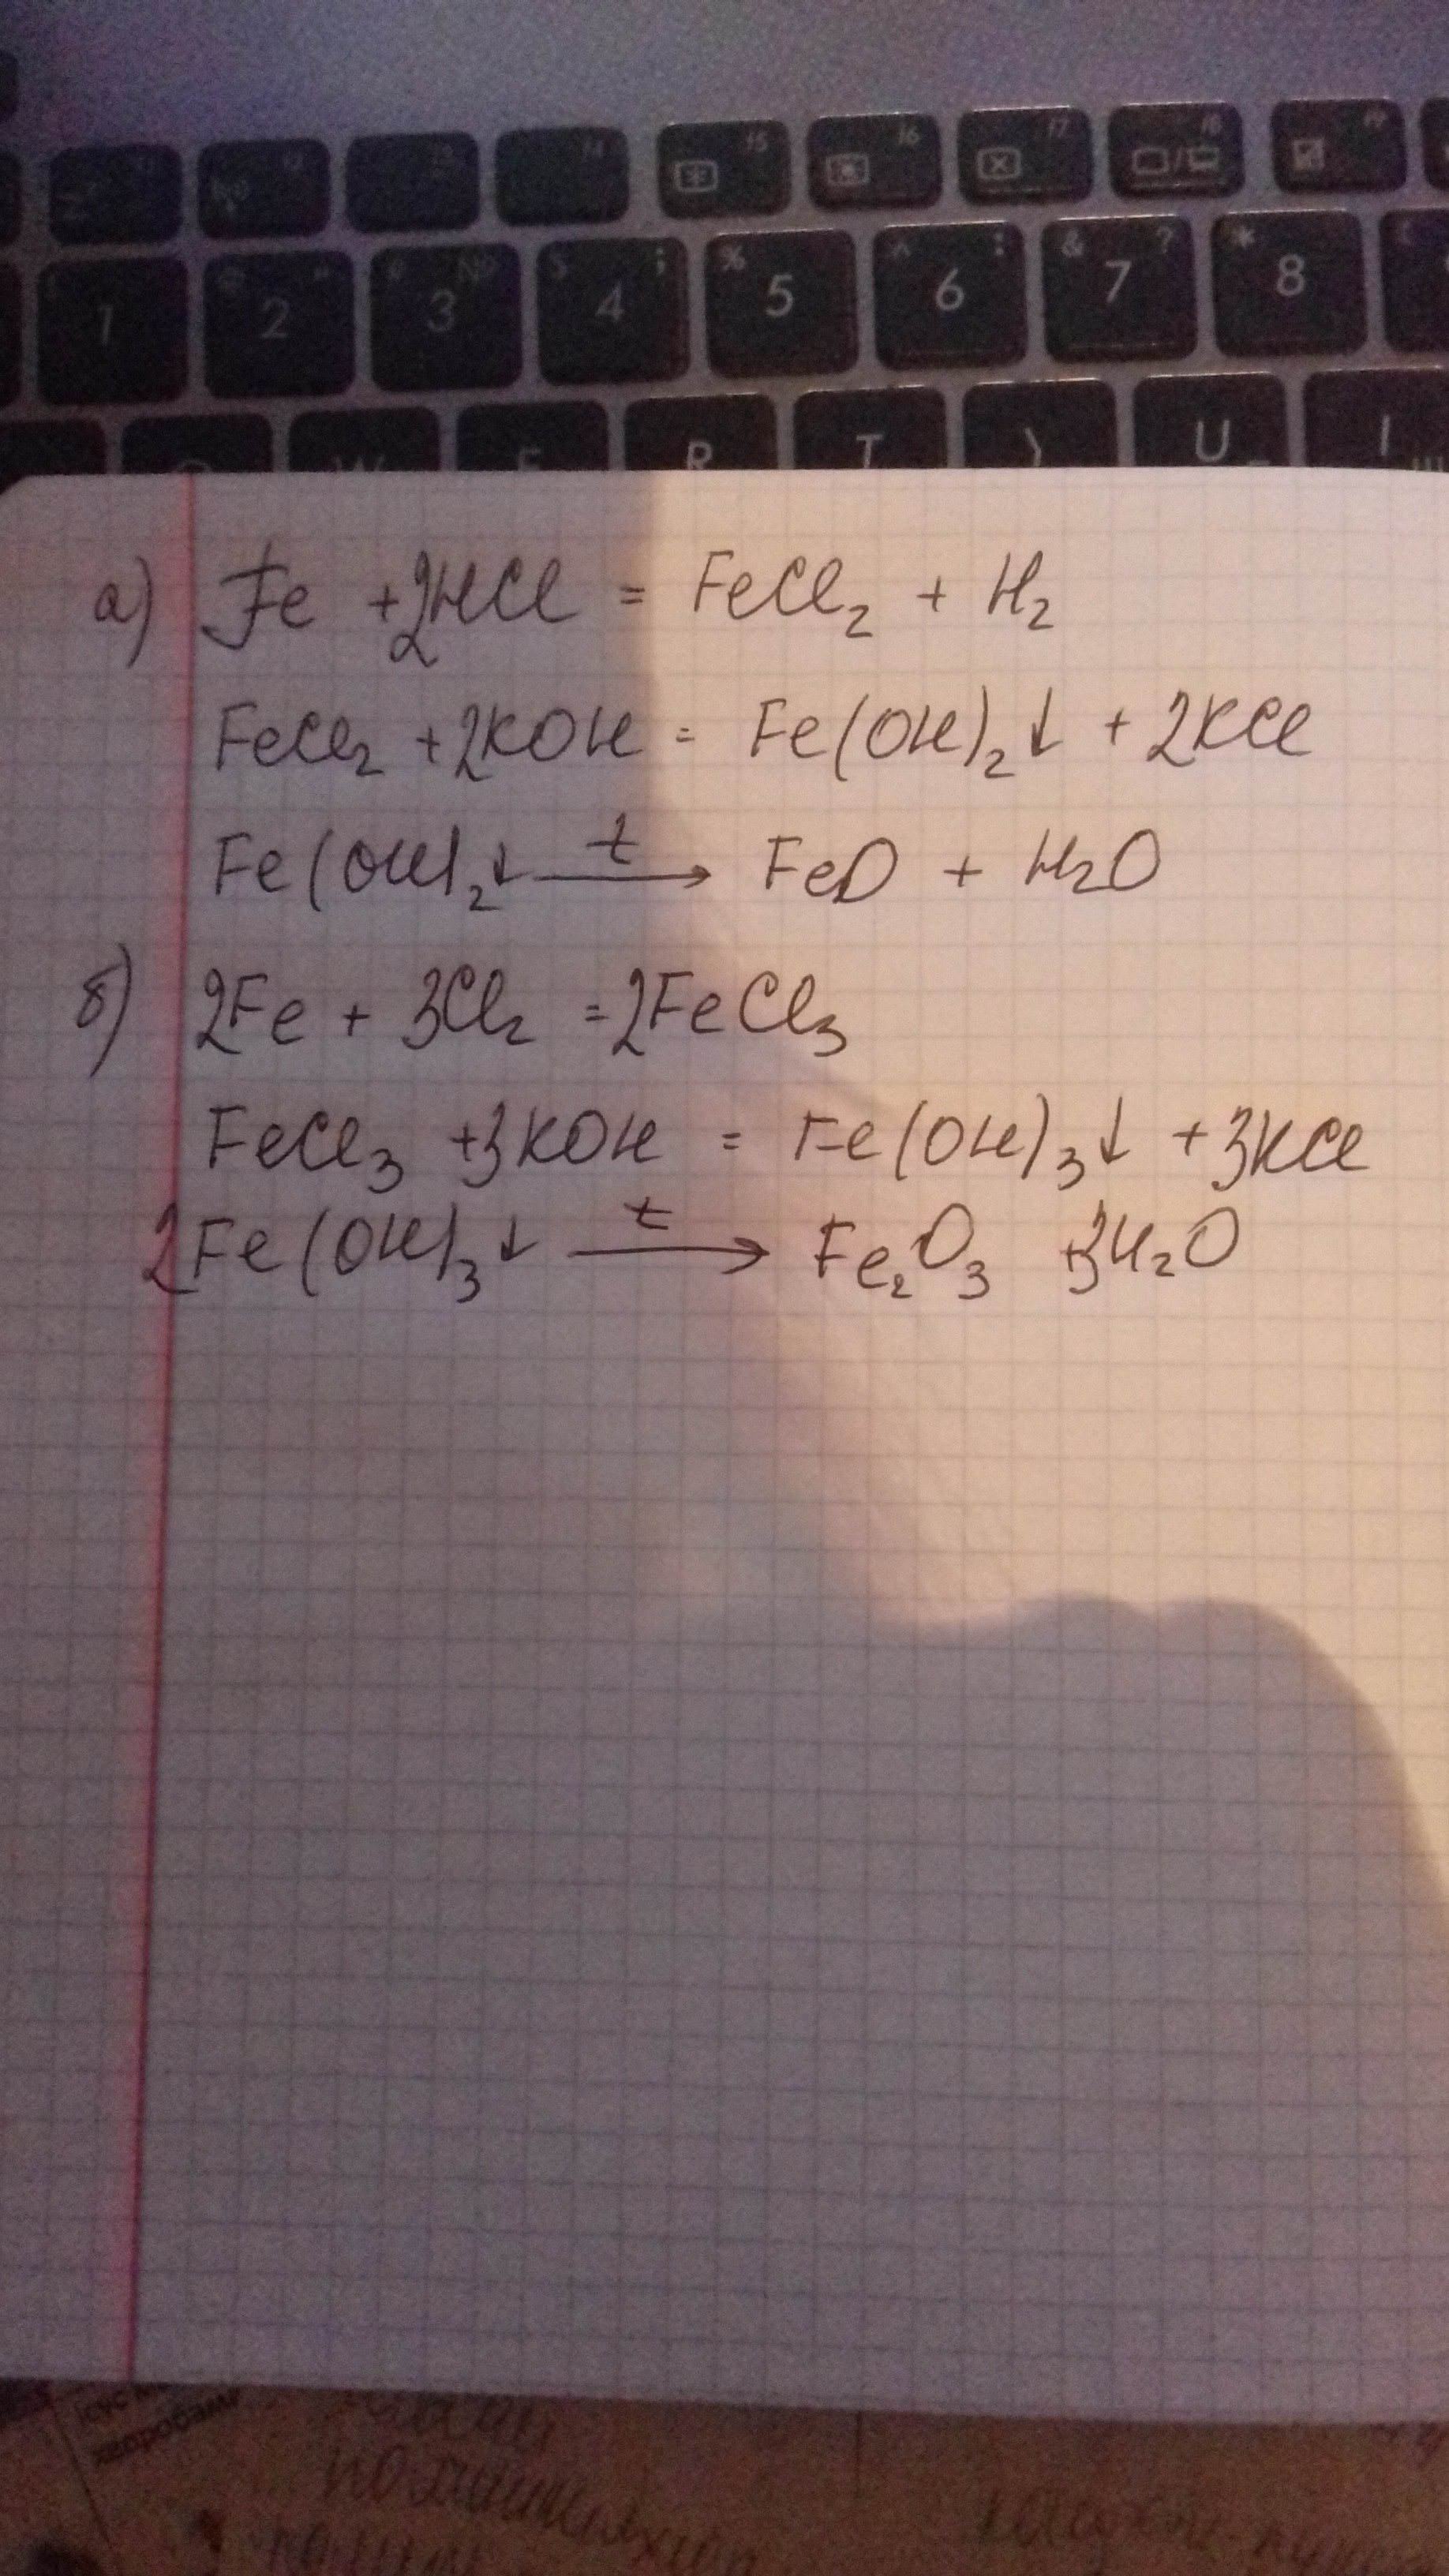 f5 f6 f7 f8 f9
1 2 3 4 5 6 7 8
% ^ : & ? *
R T U I
а) Fe + 2HCl = FeCl₂ + H₂
FeCl₂ + 2KOH = Fe(OH)₂↓ + 2KCl
Fe(OH)₂↓ —t→ FeO + H₂O
б) 2Fe + 3Cl₂ = 2FeCl₃
FeCl₃ + 3KOH = Fe(OH)₃↓ + 3KCl
2Fe(OH)₃↓ —t→ Fe₂O₃ + 3H₂O